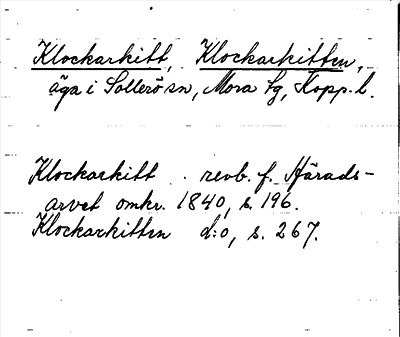 Klockarkitt, Klockarkitten,
äga i Sollerö sn, Mora tg, Kopp. l.
Klockarkitt . revb. f. Härads-
arvet omkr. 1840, s. 196.
Klockarkitten d:o, s. 267.